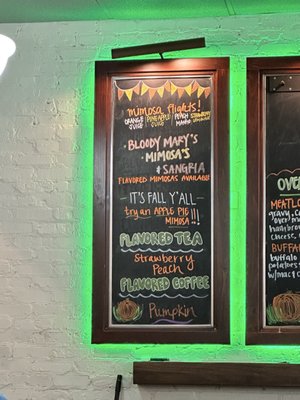 mimosa flights!
ORANGE JUICE
PINEAPPLE JUICE
PEACH MANGO
STRAWBERRY
• BLOODY MARY'S
• MIMOSA'S
& SANGRIA
FLAVORED MIMOSAS AVAILABLE
-IT'S FALL Y'ALL-
try an APPLE PIE
MIMOSA!!!
FLAVORED TEA
Strawberry
Peach
FLAVORED COFFEE
Pumpkin
OVE
MEATLO
gravy, c
cheese,
BUFFA
buffalo
potatoes
w/mac &